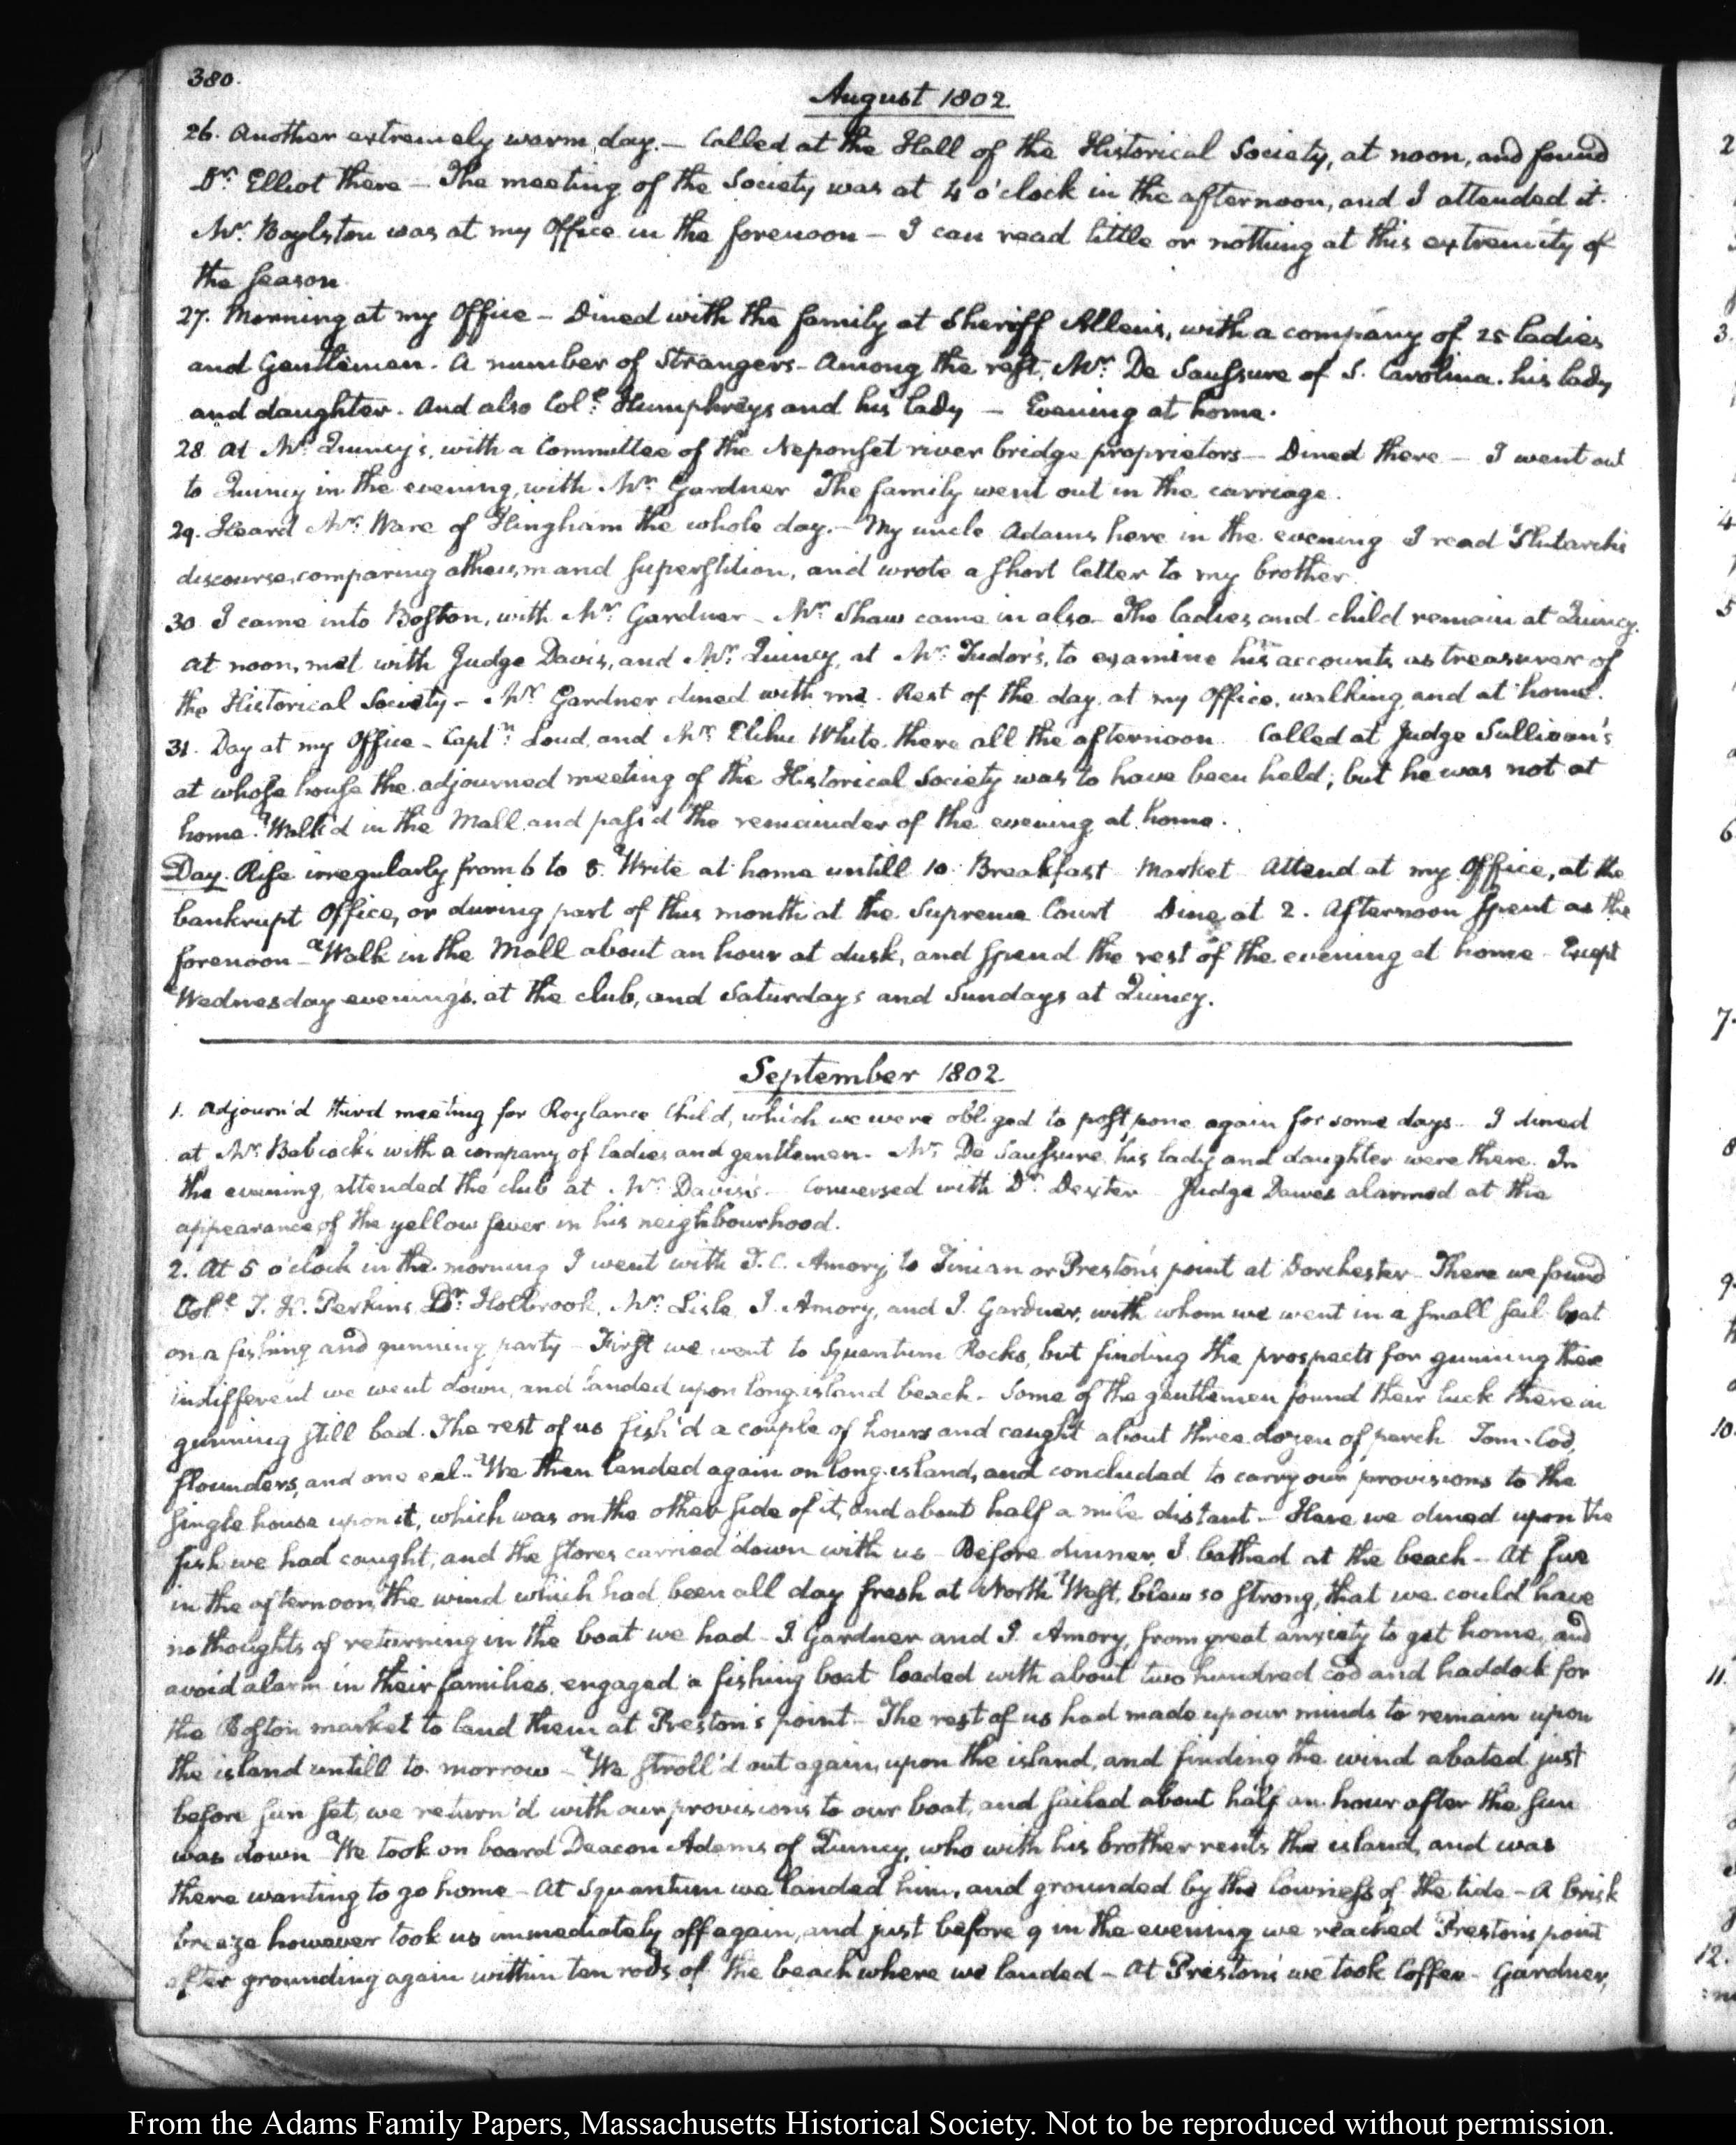 380.
August 1802.
26. Another extremely warm day. — Called at the Hall of the Historical Society, at noon, and found
Dr. Elliot there — The meeting of the Society was at 4 o'clock in the afternoon, and I attended it.
Mr. Boylston was at my Office in the forenoon — I can read little or nothing at this extremity of
the season.
27. Morning at my Office — Dined with the family at Sheriff Allen's, with a company of 25 ladies
and Gentlemen. A number of Strangers — Among the rest, Mr. De Saussure of S. Carolina. his lady
and daughter. And also Coll. Humphreys and his lady — Evening at home.
28. At Mr. Quincy's, with a Committee of the Neponset river bridge proprietors — Dined there — I went out
to Quincy in the evening, with Mr. Gardner The family went out in the carriage.
29. Heard Mr. Ware of Hingham the whole day. — My uncle Adams here in the evening I read Plutarch's
discourse, comparing atheism and superstition, and wrote a short letter to my brother.
30. I came into Boston, with Mr. Gardner — Mr. Shaw came in also — The ladies and child remain at Quincy.
At noon, met with Judge Davis, and Mr. Quincy, at Mr. Tudor's, to examine his accounts as treasurer of
the Historical Society — Mr. Gardner dined with me. Rest of the day at my Office, walking, and at home.
31. Day at my Office — Captn. Loud, and Mr. Elihu White there all the afternoon. Called at Judge Sullivan's
at whose house the adjourned meeting of the Historical Society was to have been held; but he was not at
home. Walk'd in the Mall and pass'd the remainder of the evening at home.
Day. Rise irregularly from 6 to 8. Write at home untill 10. Breakfast Market Attend at my Office, at the
bankrupt Office, or during part of this month at the Supreme Court Dine at 2. Afternoon spent as the
forenoon — Walk in the Mall about an hour at dusk, and spend the rest of the evening at home — Except
Wednesday evenings, at the club, and Saturdays and Sundays at Quincy.
September 1802.
1. Adjourn'd third meeting for Roylance Child, which we were obliged to postpone again for some days — I dined
at Mr. Babcock's with a company of ladies and gentlemen — Mr. De Saussure his lady and daughter were there. In
the evening, attended the club at Mr. Davis's — Conversed with Dr. Dexter Judge Dawes alarmed at the
appearance of the yellow fever in his neighbourhood.
2. At 5 o'clock in the morning I went with T. C. Amory, to Tinian or Preston's point at Dorchester — There we found
Coll. T. H. Perkins, Dr. Holbrook, Mr. Lisle, J. Amory, and J. Gardner, with whom we went in a small sail boat
on a fishing and gunning party — First we went to Squantum Rocks, but finding the prospects for gunning there
indifferent we went down, and landed upon long-island beach — Some of the gentlemen found their luck there in
gunning still bad. The rest of us fish'd a couple of hours and caught about three dozen of perch Tom-Cod,
flounders, and one eel. — We then landed again on long-island, and concluded to carry our provisions to the
single house upon it, which was on the other side of it, and about half a mile distant — Here we dined upon the
fish we had caught, and the stores carried down with us — Before dinner, I bathed at the beach — At five
in the afternoon, the wind which had been all day fresh at North West, blew so strong, that we could have
no thoughts of returning in the boat we had — J. Gardner and J. Amory, from great anxiety to get home, and
avoid alarm in their families, engaged a fishing boat loaded with about two hundred cod and haddock for
the Boston market to land them at Preston's point — The rest of us had made up our minds to remain upon
the island untill to-morrow — We stroll'd out again, upon the island, and finding the wind abated just
before sun set, we return'd with our provisions to our boat, and sailed about half an hour after the sun
was down — We took on board Deacon Adams of Quincy, who with his brother rents the island, and was
there wanting to go home — At Squantum we landed him, and grounded by the lowness of the tide — A brisk
breeze however took us immediately off again, and just before 9 in the evening we reached Preston's point
after grounding again within ten rods of the beach where we landed — At Preston's we took Coffee — Gardner,
From the Adams Family Papers, Massachusetts Historical Society. Not to be reproduced without permission.